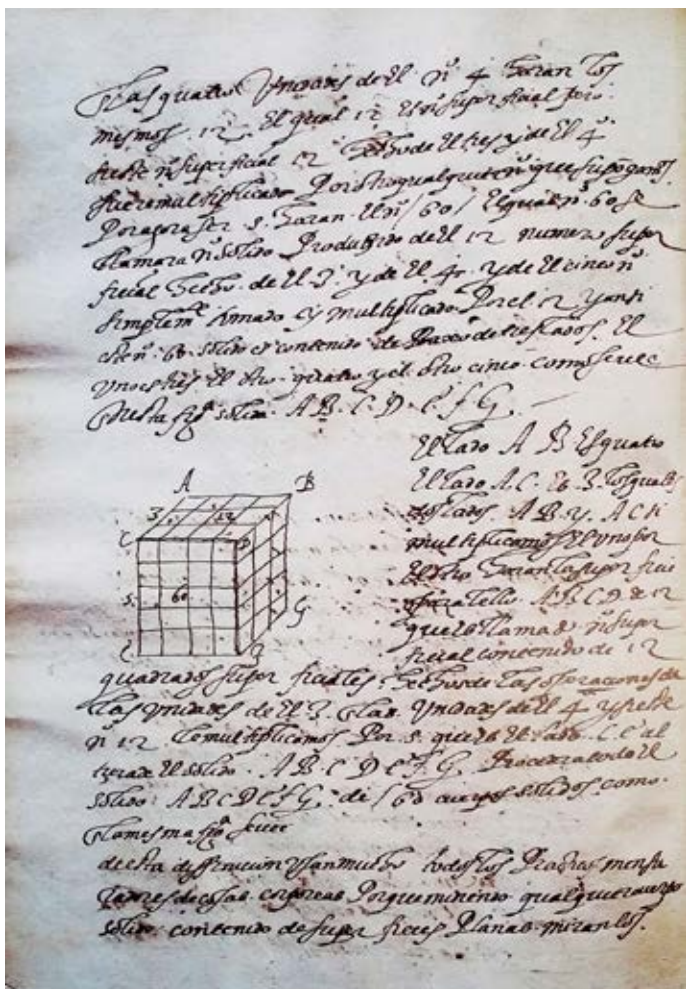 Las quatro Unidades de El nº 4 haran los
mesmos 12 El qual 12 Es nº superficial pero
si este nº superficial 12 hecho de El tres y de El 4
fuere multiplicado Por otro qualquier nº que supōgamos
Por agora ser 5. haran El nº /60/ El qual nº 60 se
llamara nº solido Produzido de El 12 numero super
ficial hecho de El 3. y de El 4. y de El cinco nº
simplemte tomado y multiplicado Por el 12 y ansi
este nº 60 solido es contenido de tres lados. El
uno es tres El otro quatro y el otro cinco como se vee
En esta figª solida A B. C. D. e f G.
El lado A B Es quatro
El lado A. C. Es 3. los quales
dos lados A B y. A C si
multiplicamos El uno por
El otro haran la superficie
A B C D de 12
que Es llamado nº super
ficial contenido de 12
A B
3 12
C D
5 60
G
e f
quadrados superficiales hechos de las de
las unidades de El 3. En las Unidades de El 4 y si este
nº 12 lo multiplicamos Por 5 que Es El lado C e al
tura de El solido A B C D e f G. Procedera todo El
solido A B C D e f G. de /60 cuerpos solidos como
En la mesma figª se vee
de esta diffinicion Usan mucho todos los mensu
radores de cosas corporeas Porque midiendo qualquier cuerpo
solido contenido de superficies Planas miran los